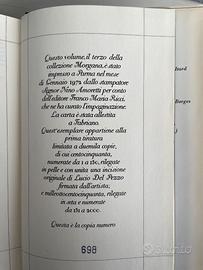 Questo volume, il terzo della
collezione Morgana, è stato
impresso a Parma nel mese
di Gennaio 1972 dallo stampatore
Signor Nino Amoretti per conto
dell'editore Franco Maria Ricci,
che ne ha curato l'impaginazione.
La carta è stata allestita
a Fabriano.
Quest'esemplare appartiene alla
prima tiratura
limitata a duemila copie,
di cui centocinquanta,
numerate da 1 a 150, rilegate
in pelle e con unita una incisione
originale di Lucio Del Pezzo
firmata dall'artista;
e milleottocentocinquanta, rilegate
in seta e numerate
da 151 a 2000.
Questa è la copia numero
698
Izard
Borges
subito